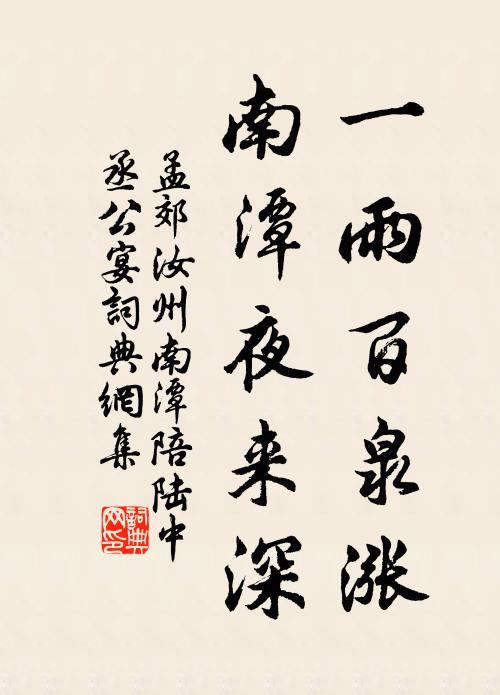 一雨百泉漲
南潭夜来深
孟郊汝州南潭陪陆中
丞公宴詞典網集
詞典
网印